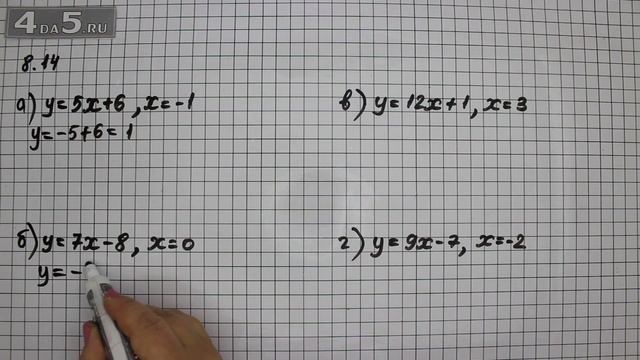 4DA5.RU
8.14
а) y=5x+6, x=-1
y=-5+6=1
б) y=7x-8, x=0
y=-
в) y=12x+1, x=3
г) y=9x-7, x=-2